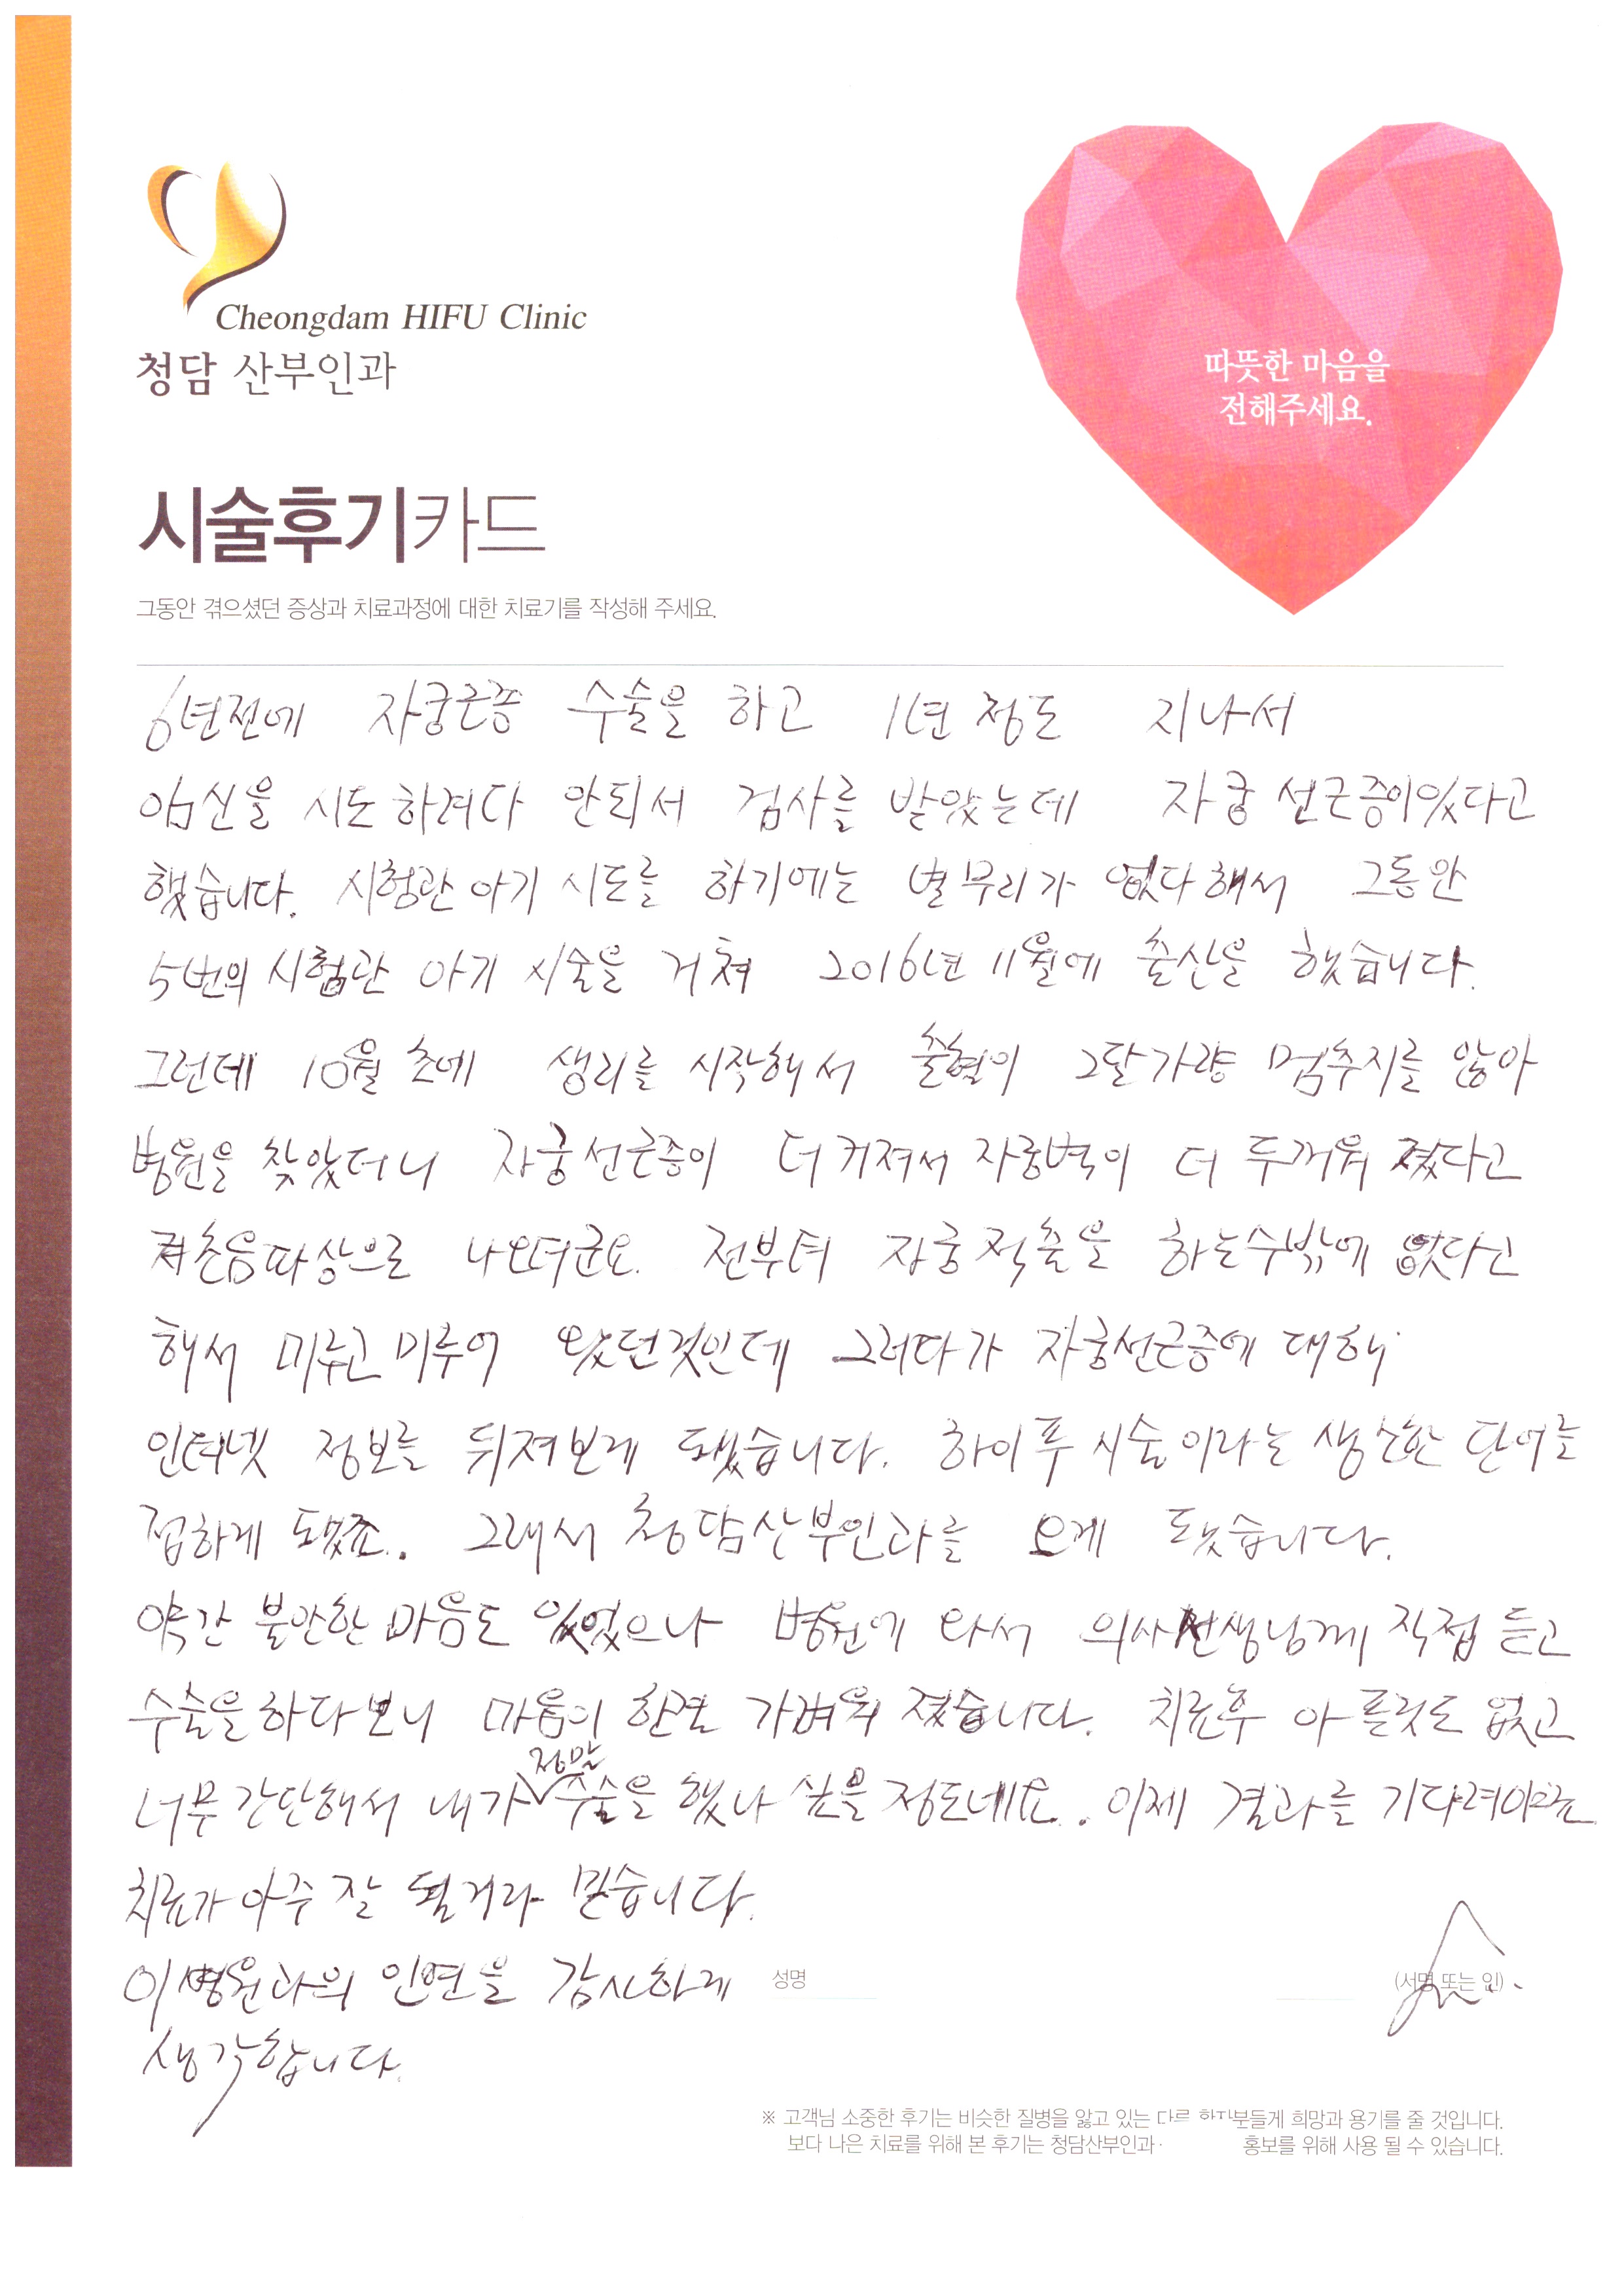 Cheongdam HIFU Clinic
청담 산부인과
따뜻한 마음을
전해주세요.
시술후기카드
그동안 겪으셨던 증상과 치료과정에 대한 치료기를 작성해 주세요.
6년전에 자궁근종 수술을 하고 1년 정도 지나서
임신을 시도하려다 안되서 검사를 받았는데 자궁선근증이있다고
했습니다. 시험관아기 시도를 하기에는 별무리가 없다해서 그동안
5번의 시험관 아기 시술을 거쳐 2016년 11월에 출산을 했습니다.
그런데 10월 초에 생리를 시작해서 출혈이 2달가량 멈추지를 않아
병원을 찾았더니 자궁선근증이 더 커져서 자궁벽이 더 두꺼워 졌다고
초음파상으로 나오더군요. 전부터 자궁적출을 하는수밖에 없다고
해서 미루고 미루어 왔던것인데 그러다가 자궁선근증에 대해
인터넷 정보를 뒤져보게 됐습니다. 하이푸 시술이라는 생소한 단어를
접하게 됐죠.. 그래서 청담산부인과를 오게 됐습니다.
약간 불안한 마음도 있었으나 병원에 와서 의사선생님께 직접 듣고
수술을하다보니 마음이 한결 가벼워 졌습니다. 치료후 아픈것도 없고
너무 간단해서 내가 정말 수술을 했나 싶을 정도네요.. 이제 결과를 기다려야죠
치료가 아주 잘 될거라 믿습니다.
이 병원과의 인연을 감사하게
생각합니다.
성명 (서명 또는 인)
※ 고객님 소중한 후기는 비슷한 질병을 앓고 있는 다른 환자분들게 희망과 용기를 줄 것입니다.
보다 나은 치료를 위해 본 후기는 청담산부인과 홍보를 위해 사용 될 수 있습니다.